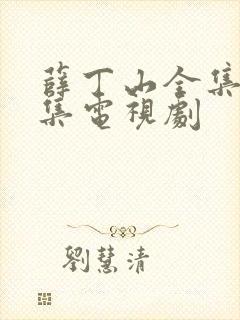 薛丁山全集
集電視劇
劉慧清